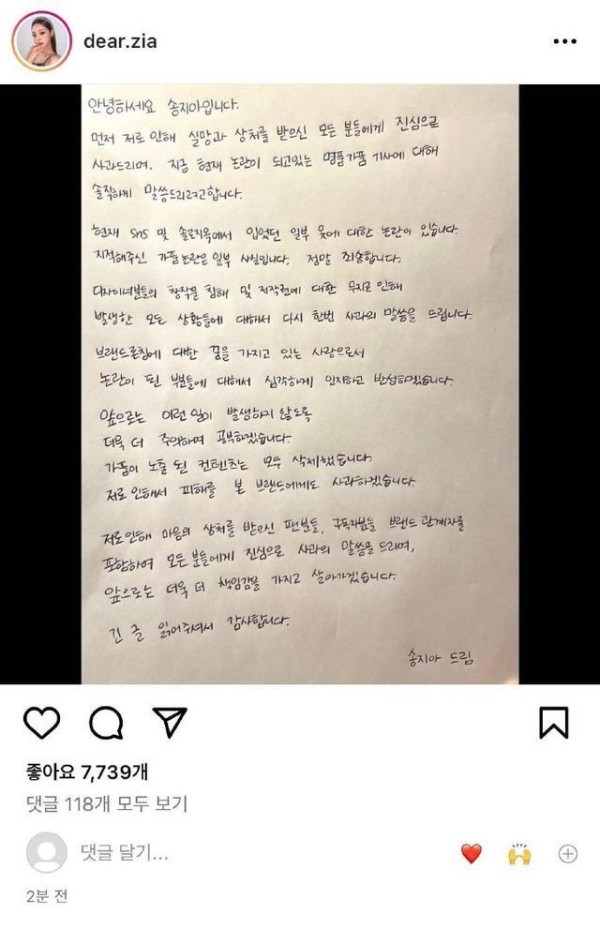 dear.zia
안녕하세요 송지아입니다.
먼저 저로 인해 실망과 상처를 받으신 모든 분들에게 진심으로
사과드리며, 지금 현재 논란이 되고있는 명품가품 기사에 대해
솔직하게 말씀드리려고합니다.
현재 SNS 및 솔로지옥에서 입었던 일부 옷에 대한 논란이 있습니다.
지적해주신 가품논란은 일부 사실입니다. 정말 죄송합니다.
디자이너분들의 창작물 침해 및 저작권에 대한 무지로 인해
발생한 모든 상황들에 대해서 다시 한번 사과의 말씀을 드립니다.
브랜드론칭에 대한 꿈을 가지고 있는 사람으로서
논란이 된 부분들에 대해서 심각하게 인지하고 반성하겠습니다.
앞으로는 이런 일이 발생하지 않도록
더욱 더 주의하며 공부하겠습니다.
가품이 노출 된 컨텐츠는 모두 삭제했습니다.
저로 인해서 피해를 본 브랜드에게도 사과하겠습니다.
저로인해 마음의 상처를 받으신 팬분들, 구독자분들 브랜드 관계자를
포함하여 모든 분들에게 진심으로 사과의 말씀을 드리며,
앞으로는 더욱 더 책임감을 가지고 살아가겠습니다.
긴 글 읽어주셔서 감사합니다.
송지아 드림
좋아요 7,739개
댓글 118개 모두 보기
댓글 달기...
2분 전